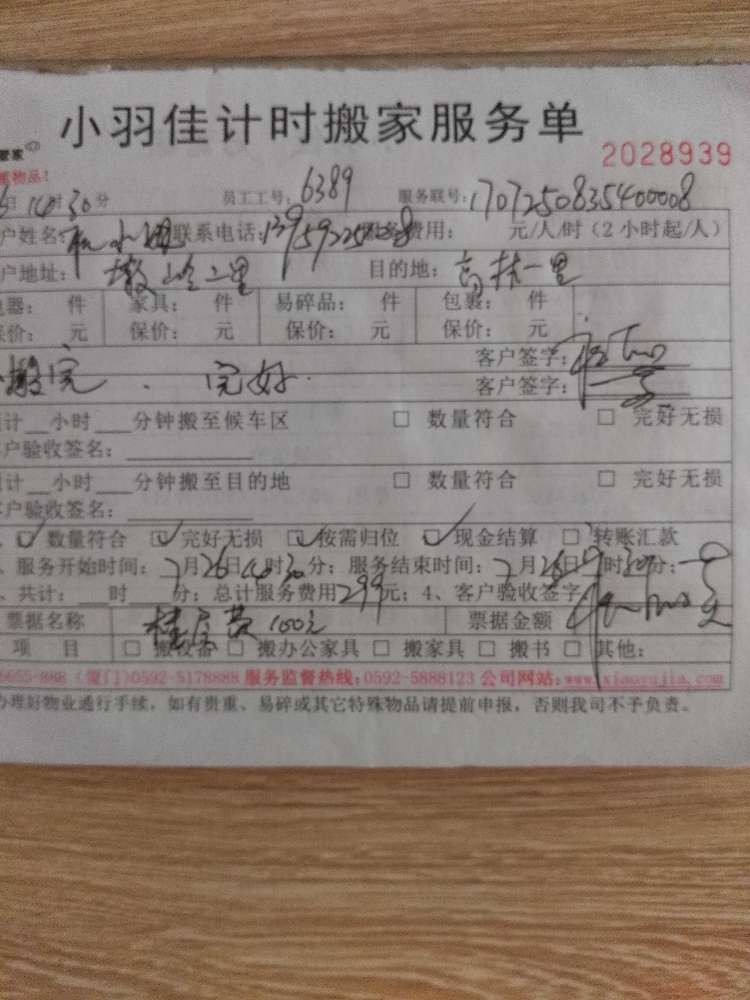 小羽佳计时搬家服务单
搬家
2028939
重物品！
日14时30分 员工工号：6389 服务联号：170725083540008
户姓名： 小姐 联系电话： 费用： 元/人/时（2小时起/人）
户地址： 墩岭二里 目的地：高林一里
电器： 件 家具： 件 易碎品： 件 包裹： 件
保价： 元 保价： 元 保价： 元 保价： 元
客户签字：
搬完、完好. 客户签字：
计__小时___分钟搬至候车区 □ 数量符合 □ 完好无损
客户验收签名：
计__小时___分钟搬至目的地 □ 数量符合 □ 完好无损
客户验收签名：
☑数量符合 ☑完好无损 ☑按需归位 ☑现金结算 □转账汇款
、服务开始时间：7月26日14时30分；服务结束时间：7月26日 时30分；
、共计： 时 分；总计服务费用299元；4、客户验收签字
票据名称 楼层费100元 票据金额
项 目 □ 搬设备 □ 搬办公家具 □ 搬家具 □ 搬书 □ 其他：
6655-888（厦门）0592-5178888 服务监督热线：0592-5888123 公司网站：www.xiaoyujia.com
办理好物业通行手续，如有贵重、易碎或其它特殊物品请提前申报，否则我司不予负责。